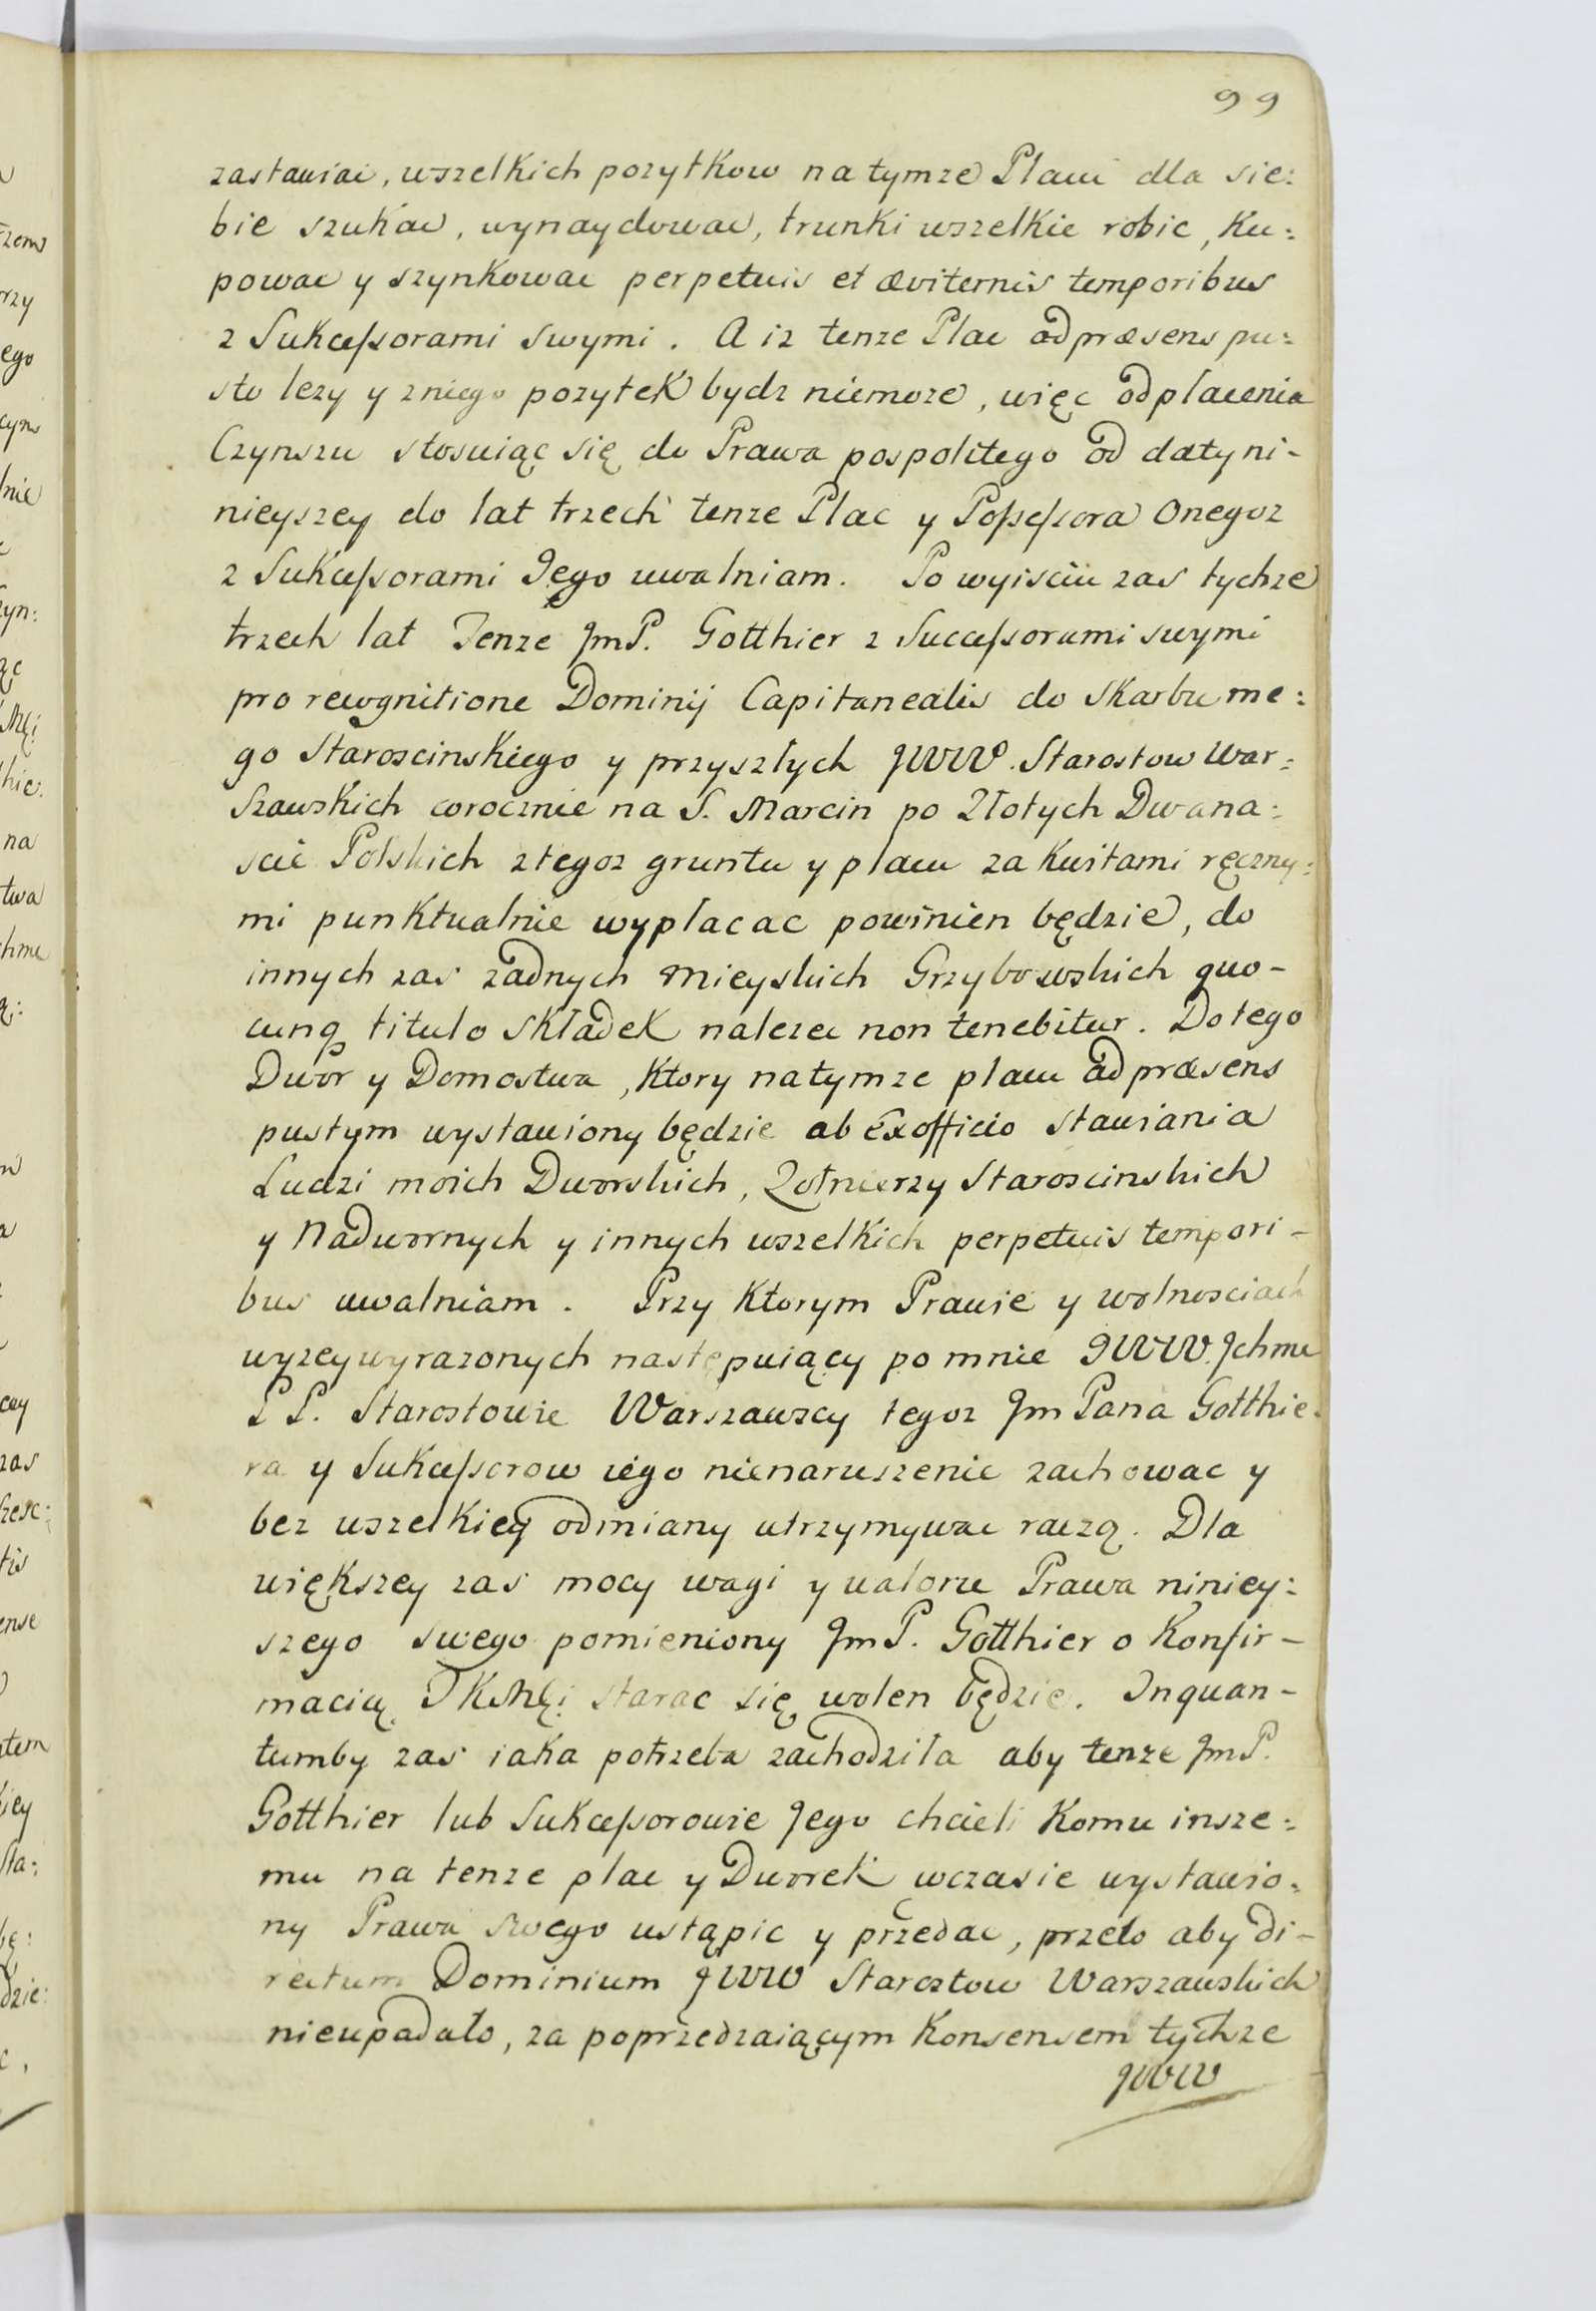 99
zastawiac, wszelkich pozytkow na tymze Placu dla sie:
bie szukac, wynaydowac, trunki wszelkie robic, Ku:
powac y szynkowac perpetuis et æviternis temporibus
z Sukcessorami swymi. A iz tenze Plac ad præsens pu:
sto lezy y z niego pozytek bydz niemoze, więc od placenia
Czynszu stosuiąc się do Prawa pospolitego od daty ni-
nieyszey do lat trzech tenze Plac y Possessora Onegoz
z Sukcessorami Jego uwalniam. Po wyisciu zas tychze
trzech lat Tenze JmP. Gotthier z Successorami swymi
pro recognitione Dominij Capitanealis do Skarbu me:
go Staroscinskiego y przyszłych JWW. Starostow War:
Szawskich corocznie na S. Marcin po Złotych Dwana:
scie Polskich z tegoz gruntu y placu za Kwitami ręczny:
mi punktualnie wyplacac powinien będzie, do
innych zas zadnych Mieyskich Grzybowskich quo-
cunq titulo Składek nalezec non tenebitur. Do tego
Dwor y Domostwa, Ktory na tymze placu ad præsens
pustym wystawiony będzie ab Exofficio stawiania
Ludzi moich Dworskich, Zołnierzy Staroscinskich
y Nadwornych y innych wszelkich perpetuis tempori-
bus uwalniam. Przy Ktorym Prawie y wolnosciach
wyzey wyrazonych następuiący po mnie JWW. Jchmc
P P. Starostowie Warszawscy tegoz Jm Pana Gotthie:
ra y Sukcessorow iego nienaruszenie zachowac y
bez wszelkiey odmiany utrzymywac raczą. Dla
większey zas mocy wagi y waloru Prawa niniey:
szego swego pomieniony JmP. Gotthier o Konfir-
macią JKMści starac się wolen będzie. Inquan-
tumby zas iaka potrzeba zachodziła aby tenze JmP.
Gotthier lub Sukcessorowie Jego chcieli Komu insze:
mu na tenze plac y Dworek wczasie wystawio:
ny Prawa swego ustąpic y przedac, przeto aby di-
rectum Dominium JWW Starostow Warszawskich
nieupadało, za poprzedzaiącym Konsensem tychze
JWW